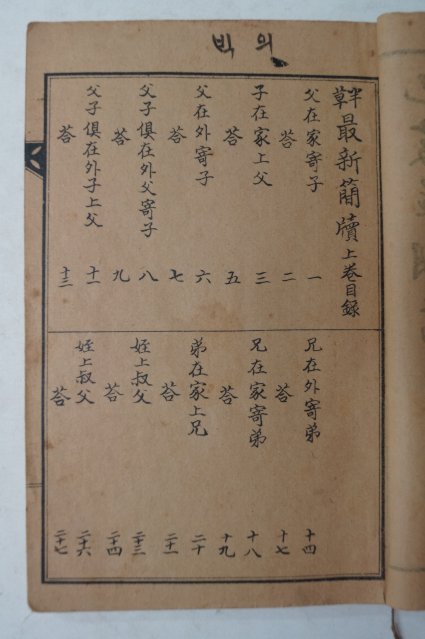 빅 의
半草最新簡牘上卷目錄
父在家寄子 一
荅 二
子在家上父 三
荅 五
父在外寄子 六
荅 七
父子俱在外父寄子 八
荅 九
父子俱在外子上父 十一
荅 十三
兄在外寄弟 十四
荅 十七
兄在家寄弟 十八
荅 十九
弟在家上兄 二十
荅 二十一
姪上叔父 二十三
荅 二十四
姪上叔父 二十六
荅 二十七